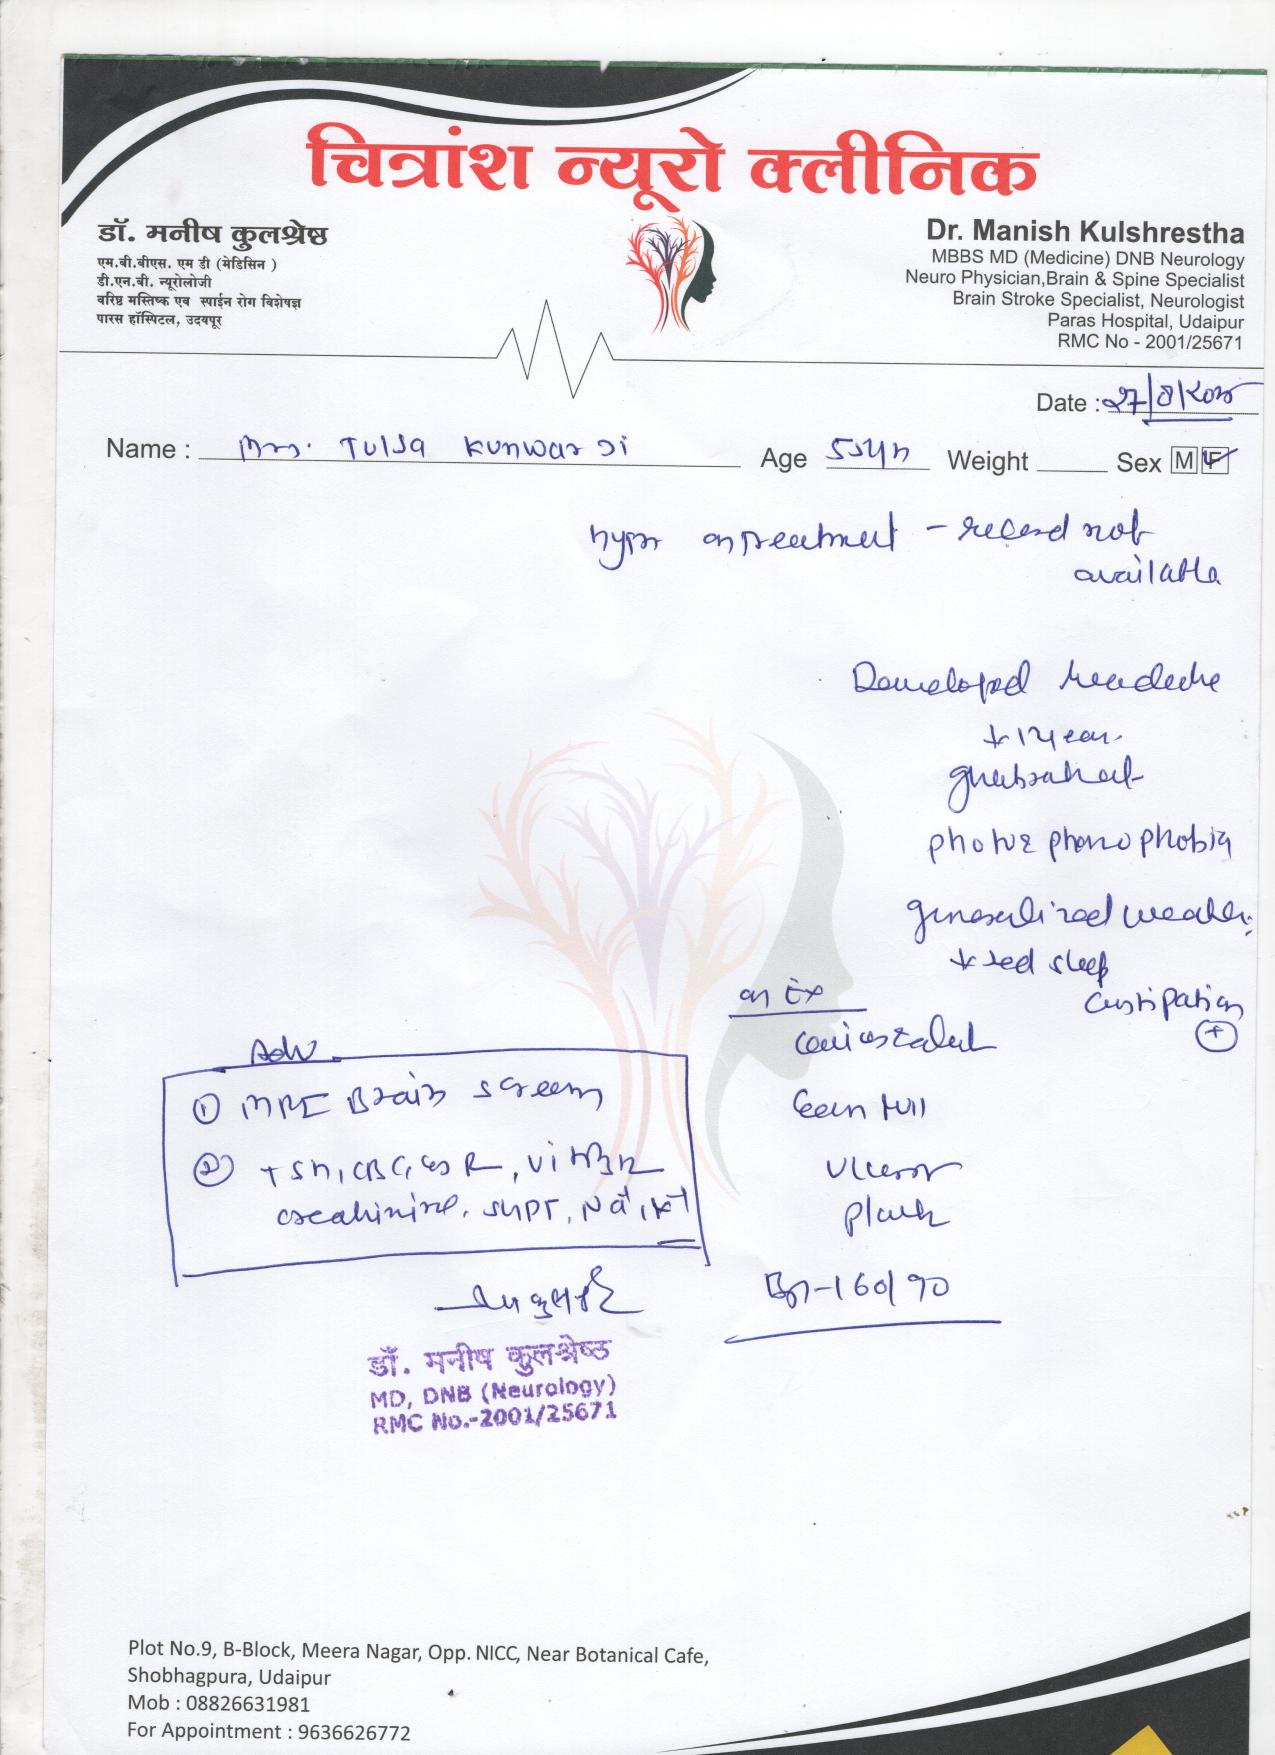 चित्रांश न्यूरो क्लीनिक
डॉ. मनीष कुलश्रेष्ठ
एम.बी.बीएस. एम डी (मेडिसिन )
डी.एन.बी. न्यूरोलोजी
वरिष्ठ मस्तिष्क एव स्पाईन रोग विशेषज्ञ
पारस हॉस्पिटल, उदयपूर
Dr. Manish Kulshrestha
MBBS MD (Medicine) DNB Neurology
Neuro Physician,Brain & Spine Specialist
Brain Stroke Specialist, Neurologist
Paras Hospital, Udaipur
RMC No - 2001/25671
Date : 27/8/2025
Name : Mrs. Tulsa Kunwar Ji Age 55yr Weight Sex M F
on treatment - record not
available
Developed headache
+ 1 year
ghabrahat
photo & phonophobia
generalized
sleep
constipation
+
on Ex
conscious
Adv
① MRI Brain screening
② TSH, CBC, ESR, Vit B12
creatinine, SGPT, Na+, K+
BP-160/90
डॉ. मनीष कुलश्रेष्ठ
MD, DNB (Neurology)
RMC No.-2001/25671
Plot No.9, B-Block, Meera Nagar, Opp. NICC, Near Botanical Cafe,
Shobhagpura, Udaipur
Mob : 08826631981
For Appointment : 9636626772